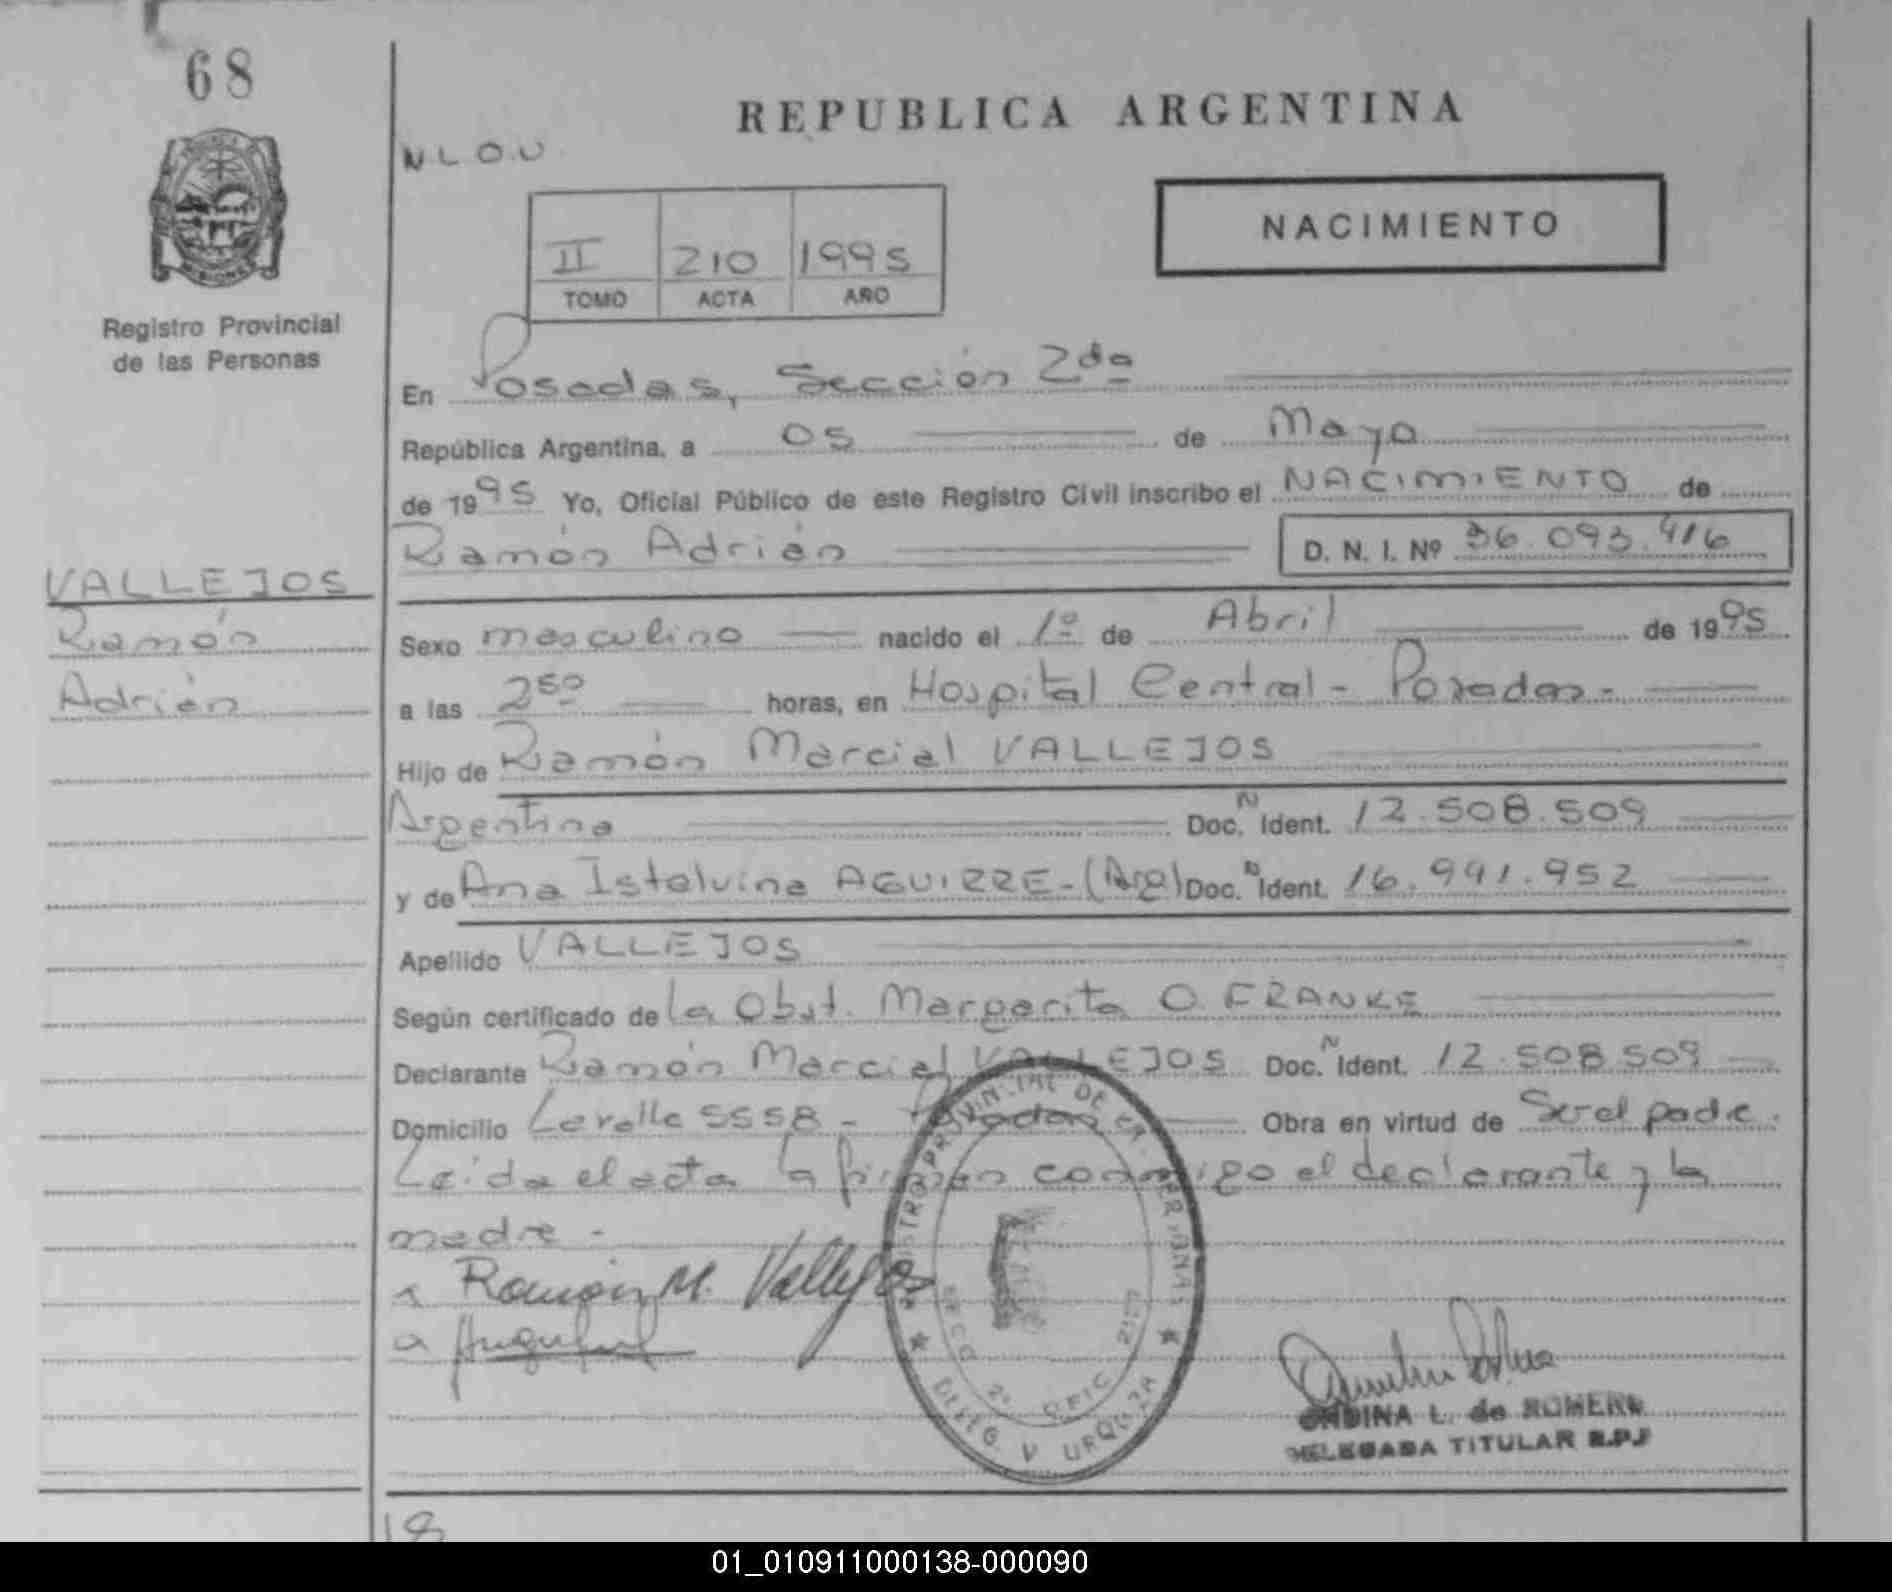 68
REPUBLICA ARGENTINA
N L O U
NACIMIENTO
II 210 1995
TOMO ACTA AÑO
Registro Provincial
de las Personas
En Posadas, Sección 2da
República Argentina, a 05 de Mayo
de 1995 Yo, Oficial Público de este Registro Civil inscribo el NACIMIENTO de
Ramón Adrián D. N. I. Nº 36.093.416
VALLEJOS
Ramón
Adrián
Sexo masculino nacido el 1º de Abril de 1995
a las 2 50 horas, en Hospital Central - Posadas -
Hijo de Ramón Marcial VALLEJOS
Argentina Doc. N Ident. 12.508.509
y de Ana Istelvina AGUIRRE - (Arg) Doc. N Ident. 16.991.952
Apellido VALLEJOS
Según certificado de la Obst. Margarita O. FRANKE
Declarante Ramón Marcial VALLEJOS Doc. N Ident. 12.508.509
Domicilio Lavalle 5558 - Posadas Obra en virtud de Ser el padre.
Leida el acta la firman conmigo el declarante y la
madre -
Ramón M. Vallejos
DELEG. V. URQUIZA
SECC 2ª OFIC
ONDINA L. de ROMERO
DELEGADA TITULAR R.P.P
18
01_010911000138-000090